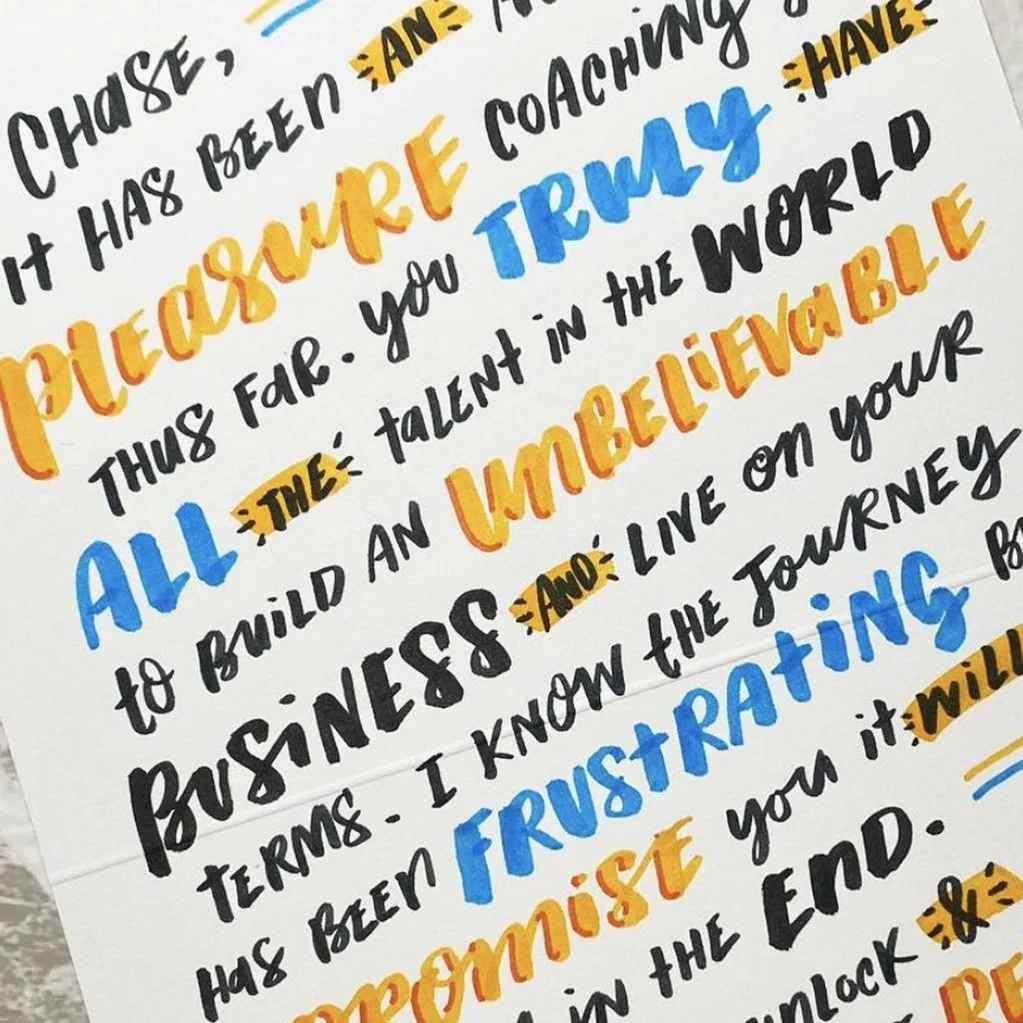 CHASE,
it HAS BEEN AN
PLEASURE COACHING
THUS FAR. you TRULY HAVE
ALL THE talent in the WORLD
to BUILD AN UNBELIEVABLE
BUSINESS AND LIVE ON your
TERMS. I KNOW the JOURNEY
HAS BEEN FRUSTRATING
PROMISE you it WILL
in THE END.
UNLOCK &